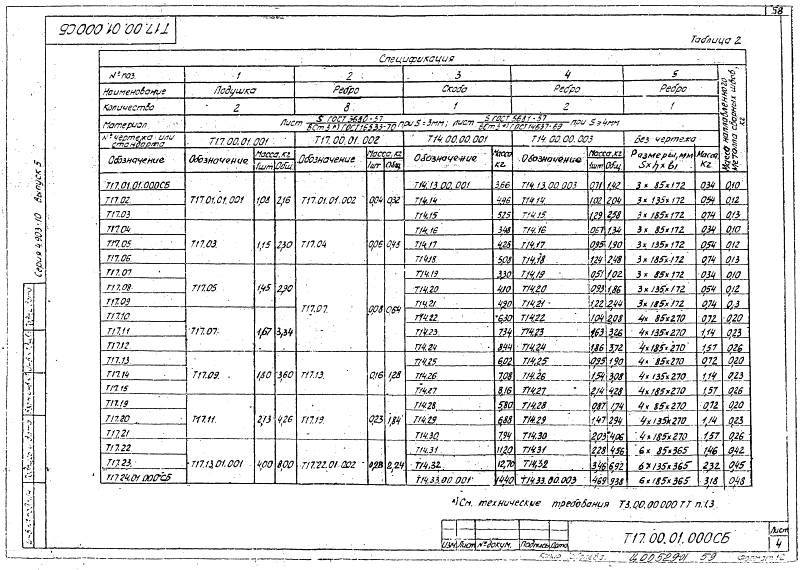 58
Т17.00.01.000СБ
Таблица 2
Спецификация
№ поз. 1 2 3 4 5
Наименование Подушка Ребро Скоба Ребро Ребро
Количество 2 8 1 2 1
Материал Лист S ГОСТ 3680-57 / ВСт.3*) ГОСТ 16533-70 при S=3мм; лист S ГОСТ 5681-57 / ВСт.3*) ГОСТ 14637-69 при S≥4мм
№ чертежа или стандарта Т17.00.01.001 Т17.00.01.002 Т14.00.00.001 Т14.00.00.003 Без чертежа
Масса наплавленного металла сварных швов, кг
Обозначение Обозначение Масса, кг 1шт Общ Обозначение Масса, кг 1шт Общ Обозначение Масса кг Обозначение Масса, кг 1шт Общ Размеры, мм S×h×b1 Масса кг
Т17.01.01.000СБ Т14.13.00.001 3,66 Т14.13.00.003 0,71 1,42 3×85×172 0,34 0,10
Т17.02 Т17.01.01.001 1,08 2,16 Т17.01.01.002 0,04 0,32 Т14.14 4,96 Т14.14 1,02 2,04 3×135×172 0,54 0,12
Т17.03 Т14.15 5,25 Т14.15 1,29 2,58 3×185×172 0,74 0,13
Т17.04 Т14.16 3,48 Т14.16 0,67 1,34 3×85×172 0,34 0,10
Т17.05 Т17.03 1,15 2,30 Т17.04 0,06 Т14.17 4,28 Т14.17 0,95 1,90 3×135×172 0,54 0,12
Т17.06 Т14.18 5,08 Т14.18 1,24 2,48 3×185×172 0,74 0,13
Т17.07 Т14.19 3,30 Т14.19 0,51 1,02 3×85×172 0,34 0,10
Т17.08 Т17.05 1,45 2,90 Т14.20 4,10 Т14.20 0,93 1,86 3×135×172 0,54 0,12
Т17.09 Т17.07 0,08 0,64 Т14.21 4,90 Т14.21 1,22 2,44 3×185×172 0,74 0,13
Т17.10 Т14.22 6,30 Т14.22 1,04 2,08 4×85×270 0,72 0,20
Т17.11 Т17.07 1,67 3,34 Т14.23 7,34 Т14.23 1,63 3,26 4×135×270 1,14 0,23
Т17.12 Т14.24 8,44 Т14.24 1,86 3,72 4×185×270 1,57 0,26
Т17.13 Т14.25 6,02 Т14.25 0,95 1,90 4×85×270 0,72 0,20
Т17.14 Т17.09 1,80 3,60 Т17.13 0,16 1,28 Т14.26 7,08 Т14.26 1,54 3,08 4×135×270 1,14 0,23
Т17.15 Т14.27 8,16 Т14.27 2,14 4,28 4×185×270 1,57 0,26
Т17.19 Т14.28 5,80 Т14.28 0,87 1,74 4×85×270 0,72 0,20
Т17.20 Т17.11 2,13 4,26 Т17.19 0,23 1,84 Т14.29 6,88 Т14.29 1,47 2,94 4×135×270 1,14 0,23
Т17.21 Т14.30 7,94 Т14.30 2,03 4,06 4×185×270 1,57 0,26
Т17.22 Т14.31 11,20 Т14.31 2,28 4,56 6×85×365 1,46 0,42
Т17.23 Т17.13.01.001 4,00 8,00 Т17.22.01.002 0,28 2,24 Т14.32 12,70 Т14.32 3,46 6,92 6×135×365 2,32 0,45
Т17.24.01.000СБ Т14.33.00.001 14,40 Т14.33.00.003 4,69 9,38 6×185×365 3,18 0,48
*) См. технические требования Т3.00.00.000 ТТ п.1.3
Серия 4.903-10 Выпуск 5
Т17.00.01.000СБ
Лист
4
Изм. Лист № докум. Подпись Дата
Копир.
Ц00529-01 59
Формат 12